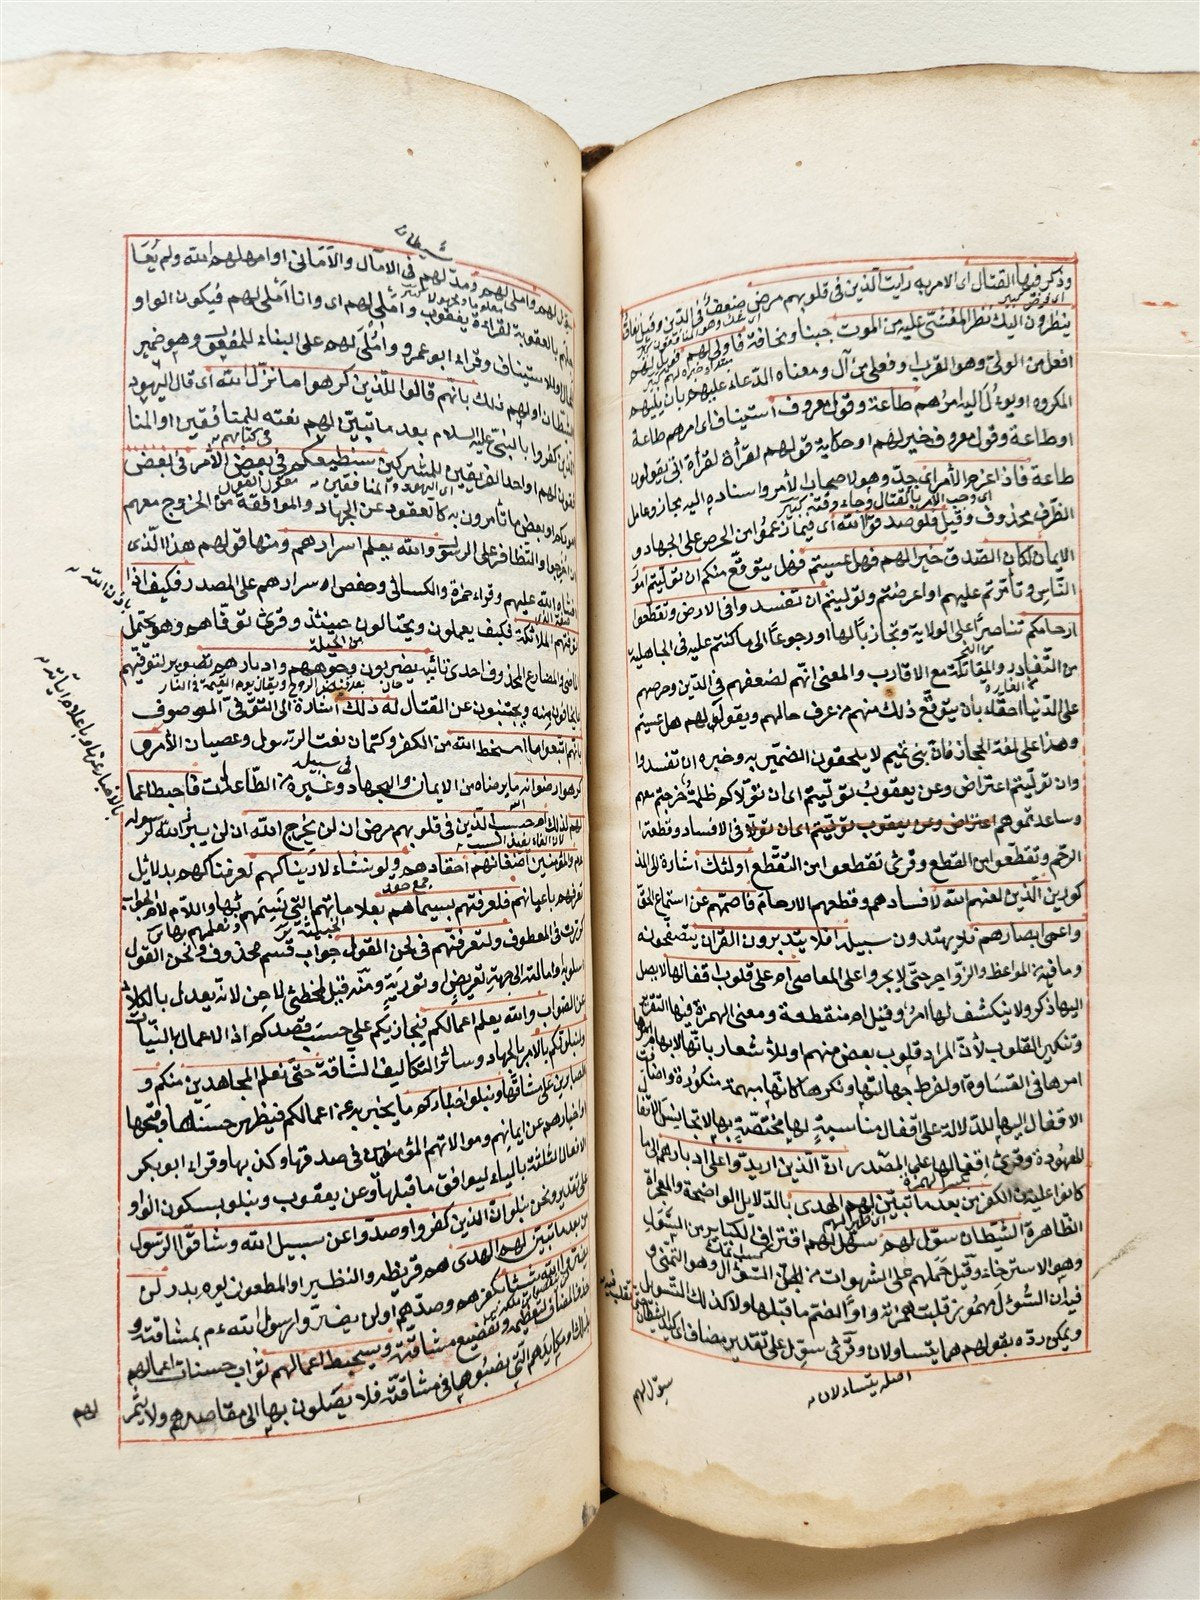 وذكر فيها القتال اى الامر به رايت الذين فى قلوبهم مرض ضعف فى الدين وقيل نفاق
ينظرون اليك نظر المغشى عليه من الموت جبنا ومخافة فاولى لهم فويل لهم
افعل من الولى وهو القرب او فعلى من آل ومعناه الدعاء عليهم بان يليهم
المكروه او يؤل اليه امرهم طاعة وقول معروف استيناف اى امرهم طاعة
او طاعة وقول معروف خير لهم او حكاية قولهم لقرأة ابى يقولون
طاعة فاذا عزم الامر اى جد وهو لاصحاب الامر واسناده اليه مجاز وعامل
الظرف محذوف وقيل فلو صدقوا الله اى فيما زعموا من الحرص على الجهاد و
الايمان لكان الصدق خيرا لهم فهل عسيتم فهل يتوقع منكم ان توليتم امور
الناس وتأمرتم عليهم او اعرضتم وتوليتم ان تفسدوا فى الارض وتقطعوا
ارحامكم تناصرا على الولاية وتجاذبا لها او رجوعا الى ما كنتم عليه فى الجاهلية
من التغاور والمقاتلة مع الاقارب والمعنى انهم لضعفهم فى الدين وحرصهم
على الدنيا احقاء بان يتوقع ذلك منهم من عرف حالهم ويقول لهم هل عسيتم
وهذا على لغة الحجاز فان بنى تميم لا يلحقون الضمير به وخبره ان تفسدوا
وان توليتم اعتراض وعن يعقوب توليتم اى ان تولاكم ظلمة خرجتم معهم
وساعدتموهم اعتراض وعن يعقوب توليتم اى ان تولا فى الافساد وقطعة ا
الرحم وتقطعوا من القطع وقرئ تقطعوا من التقطع اولئك اشارة الى المذ
كورين الذين لعنهم الله لافسادهم وقطعهم الارحام فاصمهم عن استماع الحق
واعمى ابصارهم فلا يهتدون سبيله افلا يتدبرون القران يتصفحونه
وما فيه من المواعظ والزواجر حتى لا يجروا على المعاصى ام على قلوب اقفالها لا يصل
اليها ذكر ولا ينكشف لها امر وقيل ام منقطعة ومعنى الهمزة فيها التقرير
وتنكير القلوب لان المراد قلوب بعض منهم او للاشعار بانها لابهام
امرها فى القساوة او لفرط جهالتها ونكرها كانها مبهمة منكورة واضافت
الاقفال اليها للدلالة على اقفال مناسبة لها مختصة بها لا تجانس الاقفا
المعهودة وقرئ اقفالها على المصدر ان الذين ارتدوا على ادبارهم الى ما
كانوا عليه من الكفر من بعد ما تبين لهم الهدى بالدلايل الواضحة والمعجزات
الظاهرة الشيطان سول لهم سهل لهم اقتراف الكباير من السول
وهو الاسترخاء وقيل حملهم على الشهوات من السؤال وهو التمنى و
فيه ان السؤل مهموز قلبت همزته واوا لضم ما قبلها ولا كذلك التسويل
ويمكن رده بقولهم هما يتساولان وقرئ سول على تقدير مضاف اى كيد الشيطان
اصله يتساءلان
سول لهم
شيطان
لهم واملى لهم ومد لهم فى الآمال والامانى او امهلهم الله ولم يعا
جلهم بالعقوبة لقراءة يعقوب واملى لهم اى وانا املى لهم فيكون الواو
للحال او للاستيناف وقراء ابو عمرو واملى لهم على البناء للمفعول وهو ضمير
الشيطان او لهم ذلك بانهم قالوا للذين كرهوا ما نزل الله اى قال اليهود
الذين كفروا بالنبى عليه السلام بعد ما تبين لهم نعته للمنافقين او المنا
فقون لهم او احد الفريقين للمشركين سنطيعكم فى بعض الامر فى بعض
اموركم او بعض ما تأمرون به كالقعود عن الجهاد والموافقة فى الخروج معهم
ان اخرجوا والتظافر على الرسول والله يعلم اسرارهم ومنها قولهم هذا الذى
افشاه الله عليهم وقراء حمزة والكسائى وحفص اسرارهم على المصدر فكيف اذا
توفتهم الملائكة فكيف يعملون ويحتالون حينئذ وقرئ توفاهم وهو يحتمل
الماضى والمضارع المحذوف احدى تائيه يضربون وجوههم وادبارهم تصوير لتوفيهم
بما يخافون منه ويجتنبون عن القتال له ذلك اشارة الى التوفى الموصوف
بانهم اتبعوا ما اسخط الله من الكفر وكتمان نعت الرسول وعصيان الامر
كرهوا رضوانه ما يرضاه من الايمان والجهاد وغيره من الطاعات فاحبط اعما
لهم لذلك ام حسب الذين فى قلوبهم مرض ان لن يخرج الله ان لن يبرز الله لرسوله
والمؤمنين اضغانهم احقادهم ولو نشاء لاريناكهم لعرفناكهم بدلايل
تعرفهم باعيانهم فلعرفتهم بسيماهم بعلاماتهم التى نسمهم بها واللام لام الجواب
كررت فى المعطوف ولتعرفنهم فى لحن القول جواب قسم محذوف ولحن القول
اسلوبه او امالته الى جهة تعريض وتورية ومنه قيل للمخطئ لاحن لانه يعدل بالكلام
عن الصواب والله يعلم اعمالكم فيجازيكم على حسب قصدكم اذ الاعمال بالنيات
ولنبلونكم بالامر بالجهاد وسائر التكاليف الشاقة حتى نعلم المجاهدين منكم و
الصابرين على مشاقها ونبلوا اخباركم ما يخبر به عن اعمالكم فيظهر حسنها وقبحها
او اخبارهم عن ايمانهم وموالاتهم المؤمنين فى صدقها وكذبها وقراء ابو بكر
الافعال الثلثة بالياء ليوافق ما قبلها وعن يعقوب ونبلو بسكون الواو
على تقدير ونحن نبلو ان الذين كفروا وصدوا عن سبيل الله وشاقوا الرسول
من بعد ما تبين لهم الهدى هم قريظة والنظير او المطعمون يوم بدر لن
يضروا الله شيئا بكفرهم وصدهم او لن يضروا رسول الله ءم بمشاقته و
حذف المضاف لتعظيمه وتفظيع مشاقته وسيحبط اعمالهم ثواب حسنات اعمالهم
بذلك او مكايدهم التى نصبوها فى مشاقته فلا يصلون بها الى مقاصدهم ولا تثمر
لهم